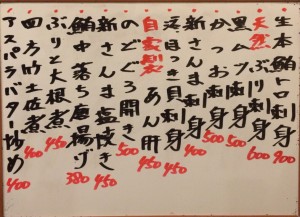 生本鮪トロ刺身 900
天然ぶり刺身 600
黒ムツ刺身 500
かつお刺身 500
新さんま刺身 400
活ほっき貝刺身 450
自家製 あん肝 450
のどぐろ開き 500
新さんま塩焼き 450
鮪中落ち唐揚げ 380
ぶりと大根煮 450
四方竹土佐煮 400
アスパラバター炒め 400